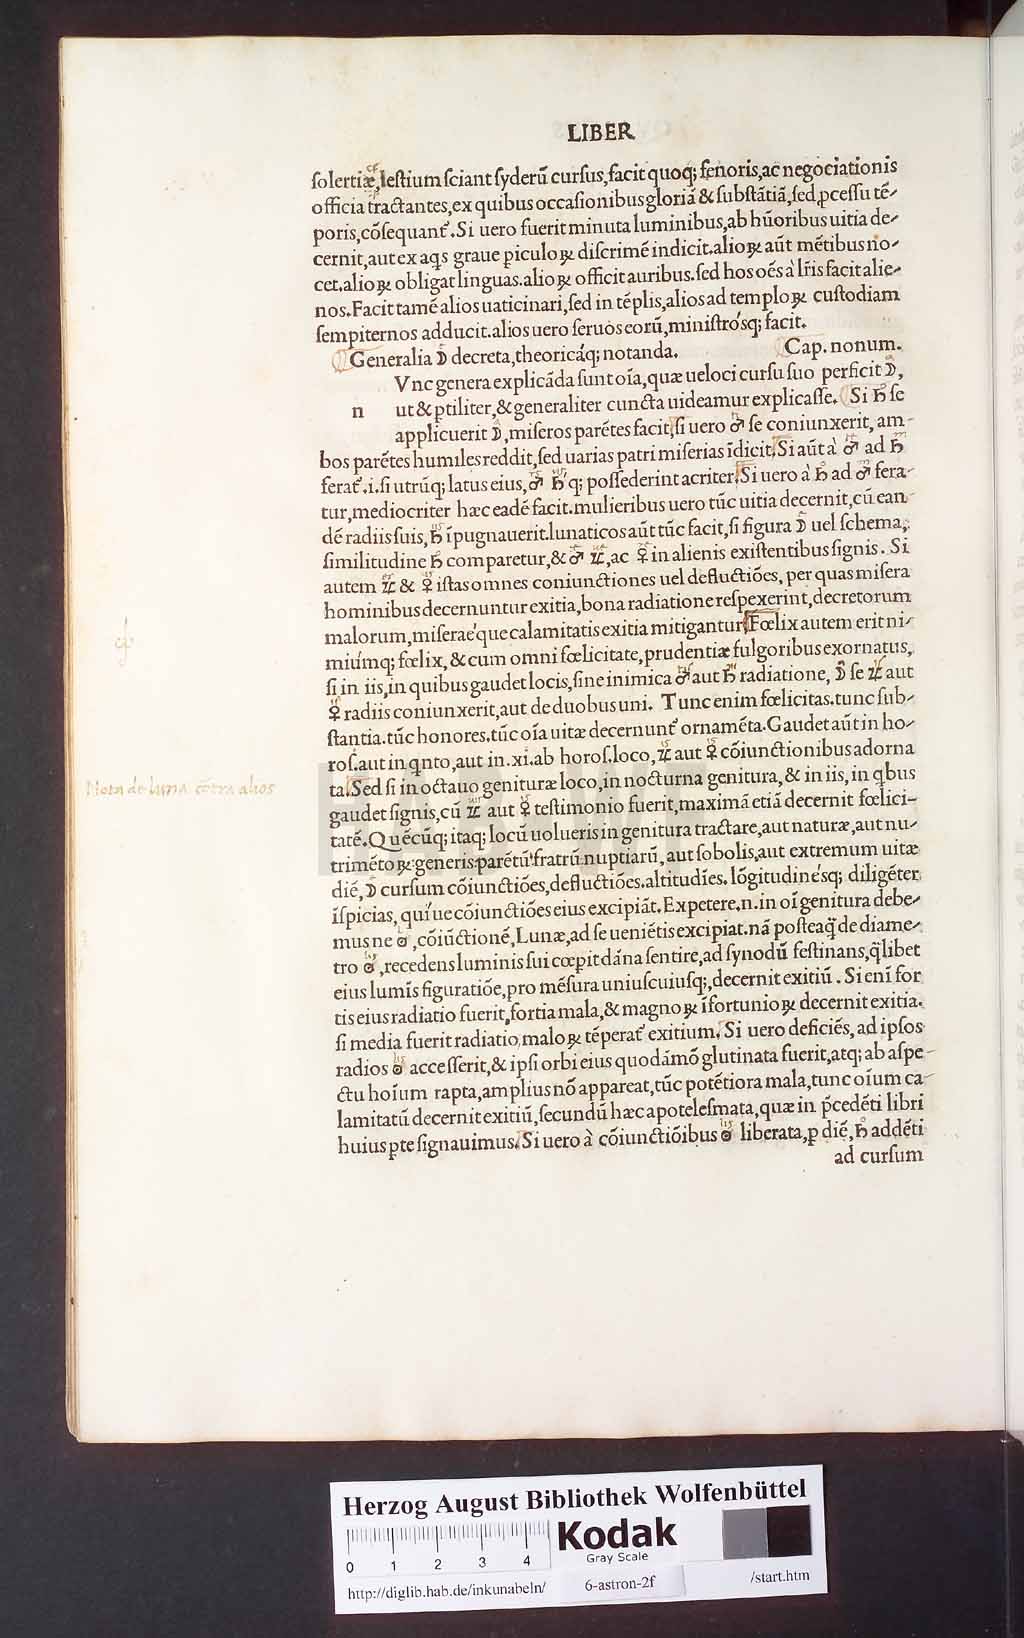 LIBER
ſolertiæ, leſtium ſciant ſyderũ curſus, facit quoq; fenoris, ac negociationis
officia tractantes, ex quibus occaſionibus gloriã & ſubſtãtiã, ſed ꝓceſſu tẽ-
poris, cõſequant᷑. Si uero fuerit minuta luminibus, ab hũoribus uitia de-
cernit, aut ex aqs graue piculoꝝ diſcrimẽ indicit. alioꝝ aũt mẽtibus no-
cet. alioꝝ obligat linguas. alioꝝ officit auribus. ſed hos oẽs à lr̃is facit alie-
nos. Facit tamẽ alios uaticinari, ſed in tẽplis, alios ad temploꝝ cuſtodiam
ſempiternos adducit. alios uero ſeruos eorũ, miniſtróſq; facit.
Generalia ☽ decreta, theoricáq; notanda. Cap. nonum.
Vnc genera explicãda ſunt oĩa, quæ ueloci curſu ſuo perficit ☽,
n ut & ꝑtiliter, & generaliter cuncta uideamur explicaſſe. Si ♄ ſe
applicuerit ☽, miſeros parẽtes facit, ſi uero ♂ ſe coniunxerit, am-
bos parẽtes humiles reddit, ſed uarias patri miſerias ĩdicit. Si aũt à ♂ ad ♄
ferat᷑. i. ſi utrũq; latus eius, ♂ ♄q; poſſederint acriter. Si uero à ♄ ad ♂ fera-
tur, mediocriter hæc eadẽ facit. mulieribus uero tũc uitia decernit, cũ ean-
dẽ radiis ſuis, ♄ ĩpugnauerit. lunaticos aũt tũc facit, ſi figura ☽ uel ſchema,
ſimilitudine ♄ comparetur, & ♂ ♃, ac ♀ in alienis exiſtentibus ſignis. Si
autem ♃ & ♀ iſtas omnes coniunctiones uel defluctiões, per quas miſera
hominibus decernuntur exitia, bona radiatione reſpexerint, decretorum
malorum, miſeraeque calamitatis exitia mitigantur. Fœlix autem erit ni-
miúmq; fœlix, & cum omni fœlicitate, prudentiæ fulgoribus exornatus,
ſi in iis, in quibus gaudet locis, ſine inimica ♂ aut ♄ radiatione, ☽ ſe ♃ aut
♀ radiis coniunxerit, aut de duobus uni. Tunc enim fœlicitas. tunc ſub-
ſtantia. tũc honores. tũc oĩa uitæ decernunt᷑ ornamẽta. Gaudet aũt in ho-
roſ. aut in qnto, aut in .xi. ab horoſ. loco, ♃ aut ♀ cõiunctionibus adorna
ta. Sed ſi in octauo genituræ loco, in nocturna genitura, & in iis, in qbus
gaudet ſignis, cũ ♃ aut ♀ teſtimonio fuerit, maximã etiã decernit fœlici-
Nota de luna cõtra alios
tatẽ. Quẽcũq; itaq; locũ uolueris in genitura tractare, aut naturæ, aut nu-
trimẽtoꝝ generis parẽtũ fratrũ nuptiarũ, aut ſobolis, aut extremum uitæ
diẽ, ☽ curſum cõiunctiões, defluctiões. altitudĩes. lõgitudinéſq; diligẽter
ĩſpicias, quíue cõiunctiões eius excipiãt. Expetere .n. in oĩ genitura debe-
mus ne ☉, cõiũctionẽ, Lunæ, ad ſe ueniẽtis excipiat. nã poſteaq̃ de diame-
tro ☉, recedens luminis ſui cœpit dãna ſentire, ad ſynodũ feſtinans, q̃libet
eius lumĩs figuratiõe, pro mẽſura uniuſcuiuſq;, decernit exitiũ. Si enĩ for
tis eius radiatio fuerit, fortia mala, & magnoꝝ ĩfortunioꝝ decernit exitia.
ſi media fuerit radiatio, maloꝝ tẽperat᷑ exitium. Si uero deficiẽs, ad ipſos
radios ☉ acceſſerit, & ipſi orbi eius quodãmõ glutinata fuerit, atq; ab aſpe-
ctu hoĩum rapta, amplius nõ appareat, tũc potẽtiora mala, tunc oĩum ca-
lamitatũ decernit exitiũ, ſecundũ hæc apoteleſmata, quæ in p̃cedẽti libri
huius ꝑte ſignauimus. Si uero à cõiunctiõibus ☉ liberata, ꝑ diẽ, ♄ addẽti
ad curſum
Herzog August Bibliothek Wolfenbüttel
0 1 2 3 4
Kodak
Gray Scale
http://diglib.hab.de/inkunabeln/ 6-astron-2f /start.htm